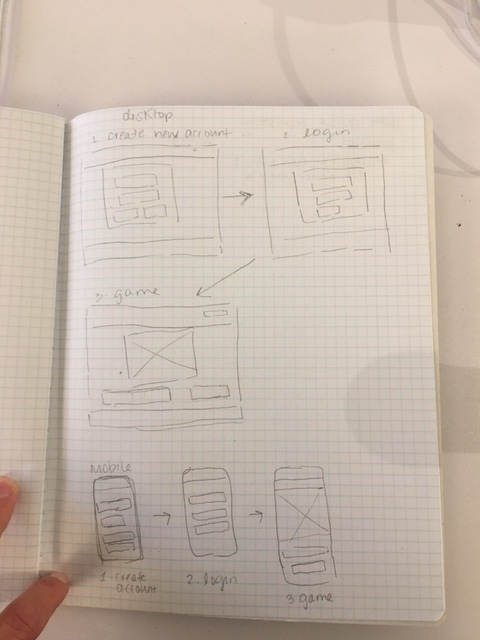 desktop
1. create new account
2. login
3. game
Mobile
1. create
account
2. login
3 game